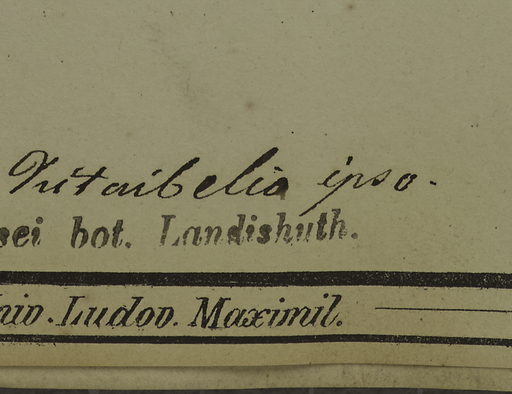 Kitaibelia ipso.
sei bot. Landishuth.
niv. Ludov. Maximil.